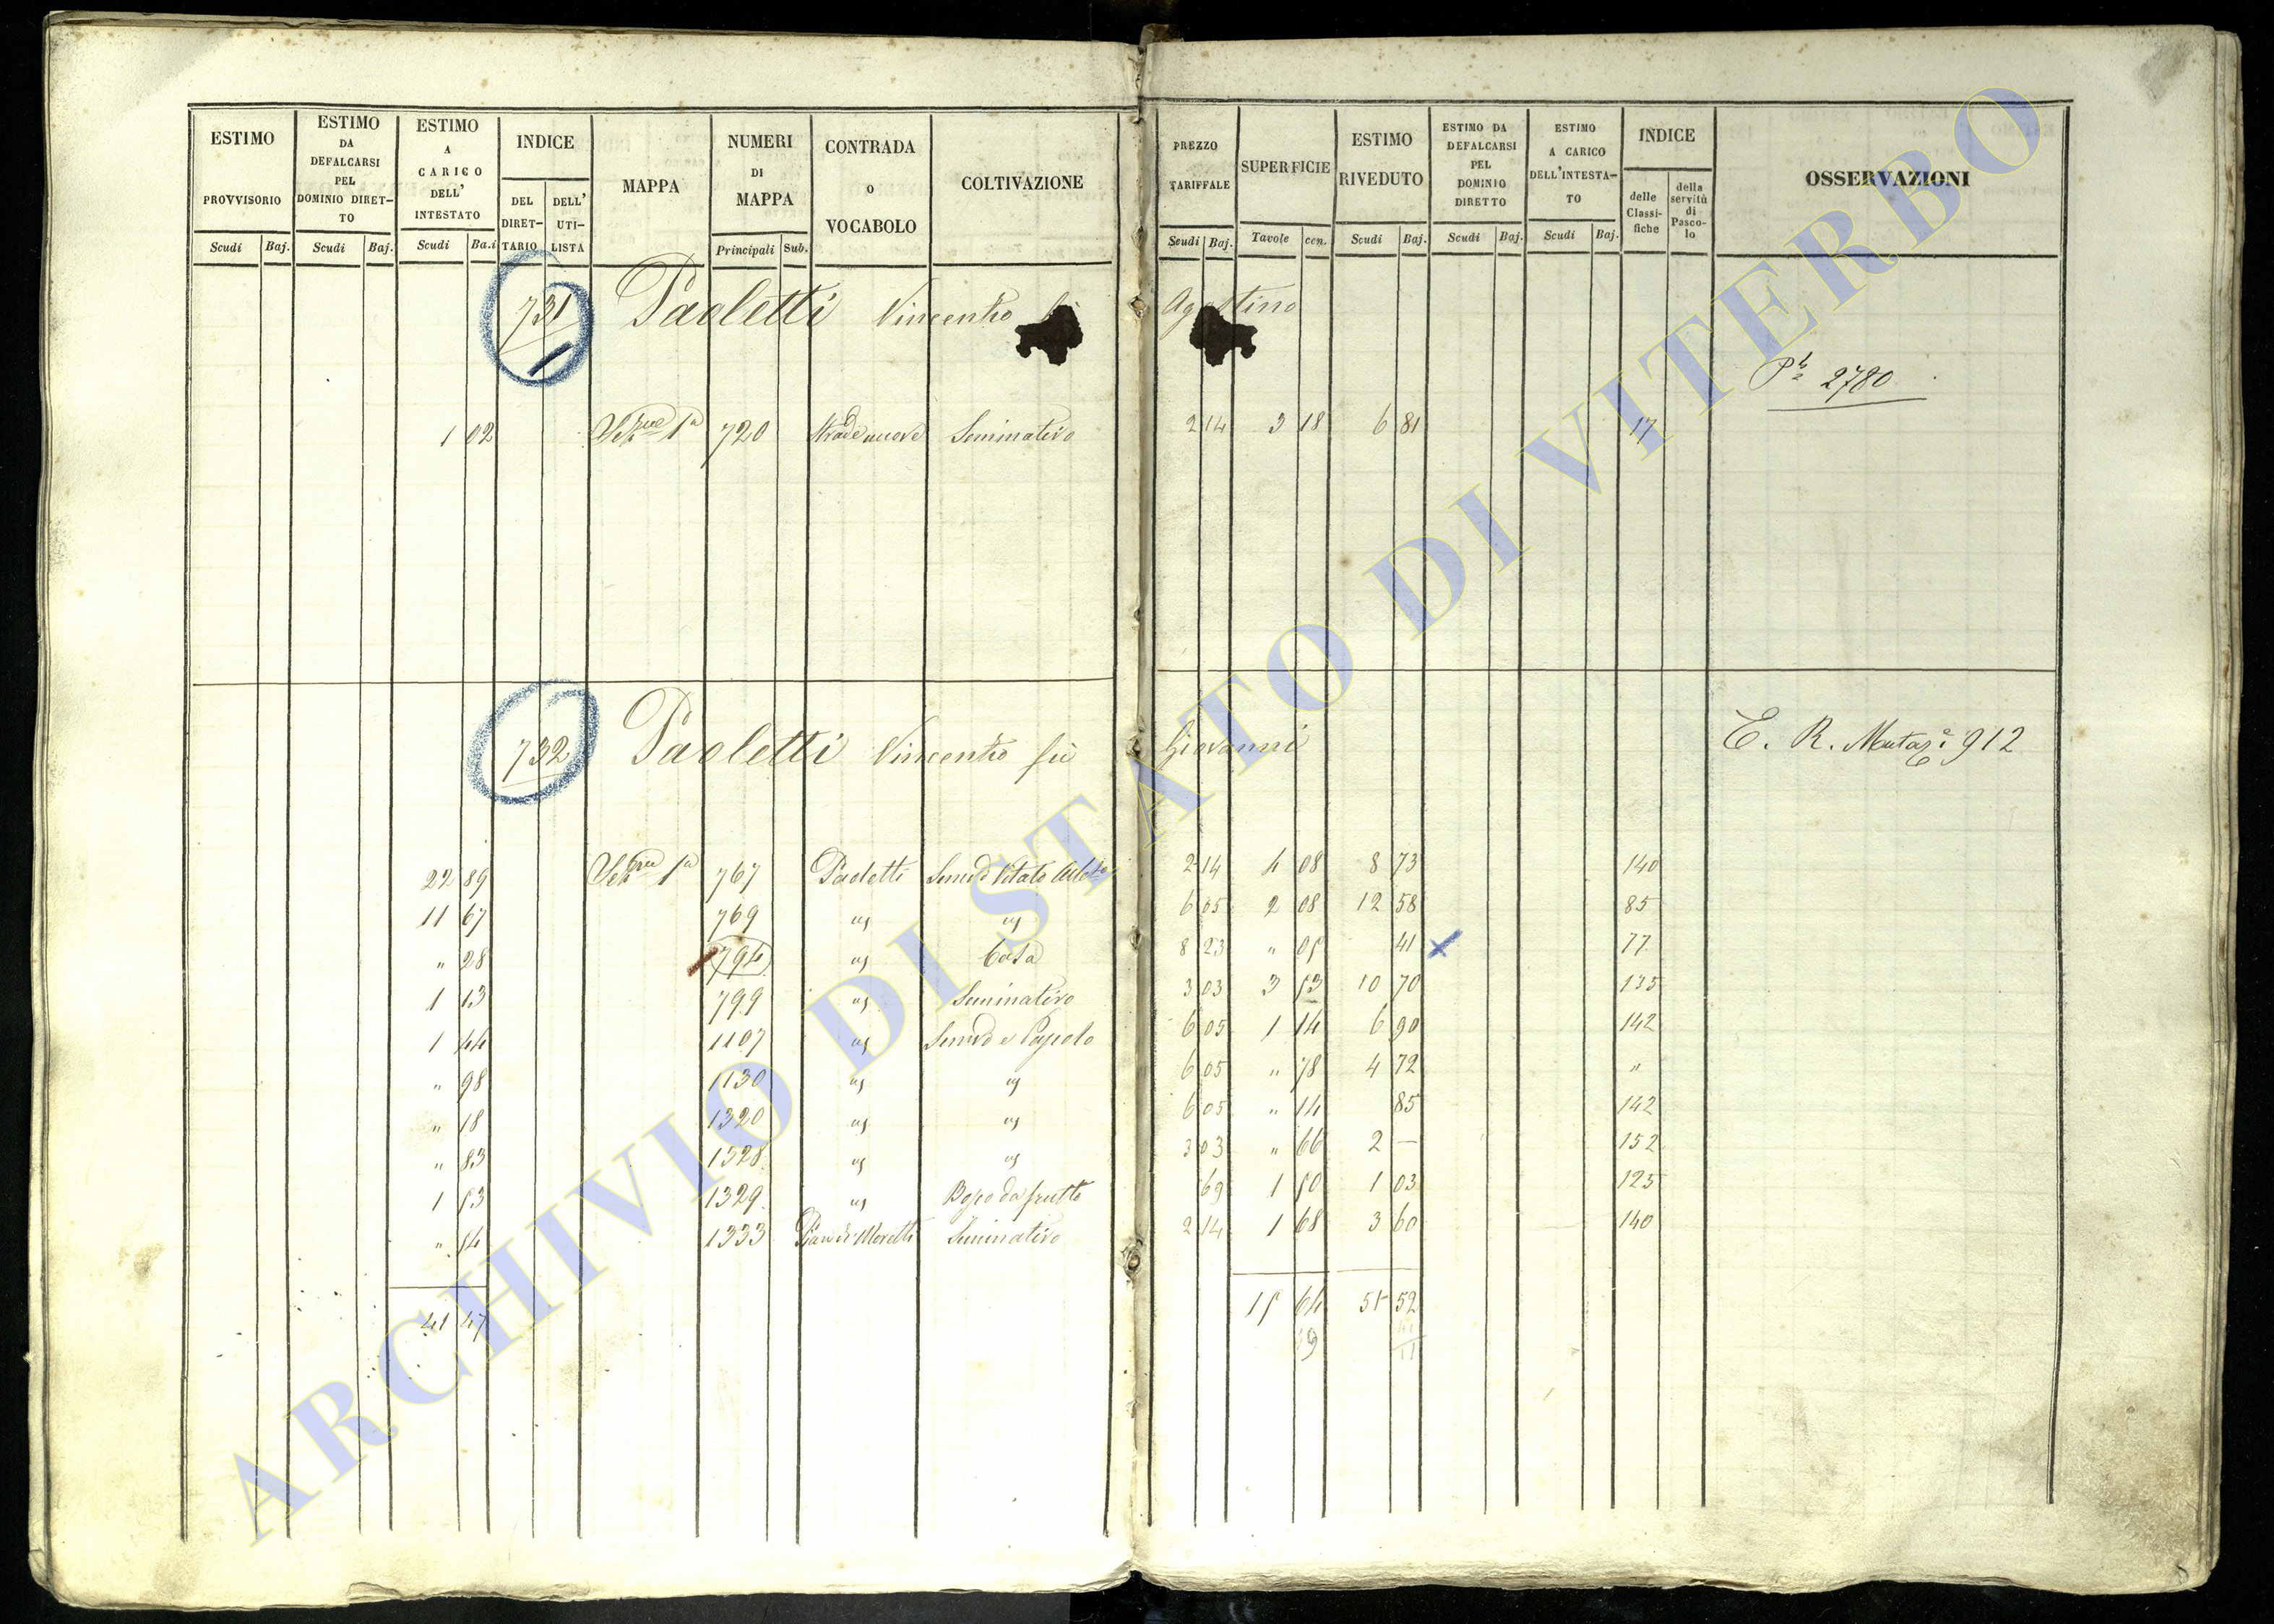 ESTIMO PROVVISORIO
Scudi Baj.
ESTIMO DA DEFALCARSI PEL DOMINIO DIRET-TO
Scudi Baj.
ESTIMO A CARICO DELL' INTESTATO
Scudi Ba.i
INDICE
DEL DIRET-TARIO
DELL' UTI-LISTA
MAPPA
NUMERI DI MAPPA
Principali Sub.
CONTRADA O VOCABOLO
COLTIVAZIONE
PREZZO TARIFFALE
Scudi Baj.
SUPERFICIE
Tavole cen.
ESTIMO RIVEDUTO
Scudi Baj.
ESTIMO DA DEFALCARSI PEL DOMINIO DIRETTO
Scudi Baj.
ESTIMO A CARICO DELL'INTESTA-TO
Scudi Baj.
INDICE
delle Classi-fiche
della servitù di Pasco-lo
OSSERVAZIONI
731 Paoletti Vincenzo fù Agostino
2780
1 02 1a 720 Strade nuove Seminativo 2 14 3 18 6 81 17
732 Paoletti Vincenzo fù Giovanni E. R. 912
22 89 1a 767 Paoletti Semivo Vitato 2 14 4 08 8 73 140
11 67 769 " " 6 05 2 08 12 58 85
" 28 794 " Casa 8 23 " 05 41 77
1 13 799 " Seminativo 3 03 3 53 10 70 135
1 44 1107 " Semivo e Pascolo 6 05 1 14 6 90 142
" 98 1130 " " 6 05 " 78 4 72 "
" 18 1320 " " 6 05 " 14 85 142
" 83 1328 " " 3 03 " 66 2 — 152
1 53 1329 " Bosco da frutto 69 1 50 1 03 125
" 54 1333 Pian di Moretti Seminativo 2 14 1 68 3 60 140
41 47 15 64 51 52
ARCHIVIO DI STATO DI VITERBO